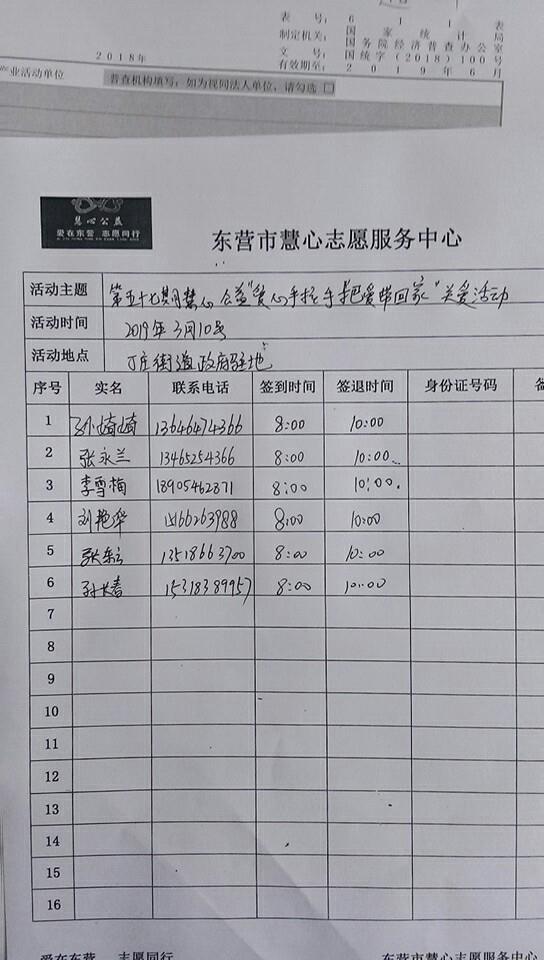 表号：611表
制定机关：国家统计局
国务院经济普查办公室
文号：国统字(2018)100号
有效期至：2019年6月
2018年
产业活动单位
普查机构填写：如为视同法人单位，请勾选 □
慧心公益
爱在东营 志愿同行
东营市慧心志愿服务中心
活动主题 第五十七期慧心公益"爱心手拉手把爱带回家"关爱活动
活动时间 2019年3月10号
活动地点 丁庄街道政府驻地
序号 实名 联系电话 签到时间 签退时间 身份证号码 备
1 孙崎崎 13646474366 8:00 10:00
2 张永兰 13465254366 8:00 10:00
3 李雪梅 18905462871 8:00 10:00
4 刘艳华 15166263988 8:00 10:00
5 张 13518663700 8:00 10:00
6 孙长春 15318389957 8:00 10:00
7
8
9
10
11
12
13
14
15
16
爱在东营 志愿同行 东营市慧心志愿服务中心